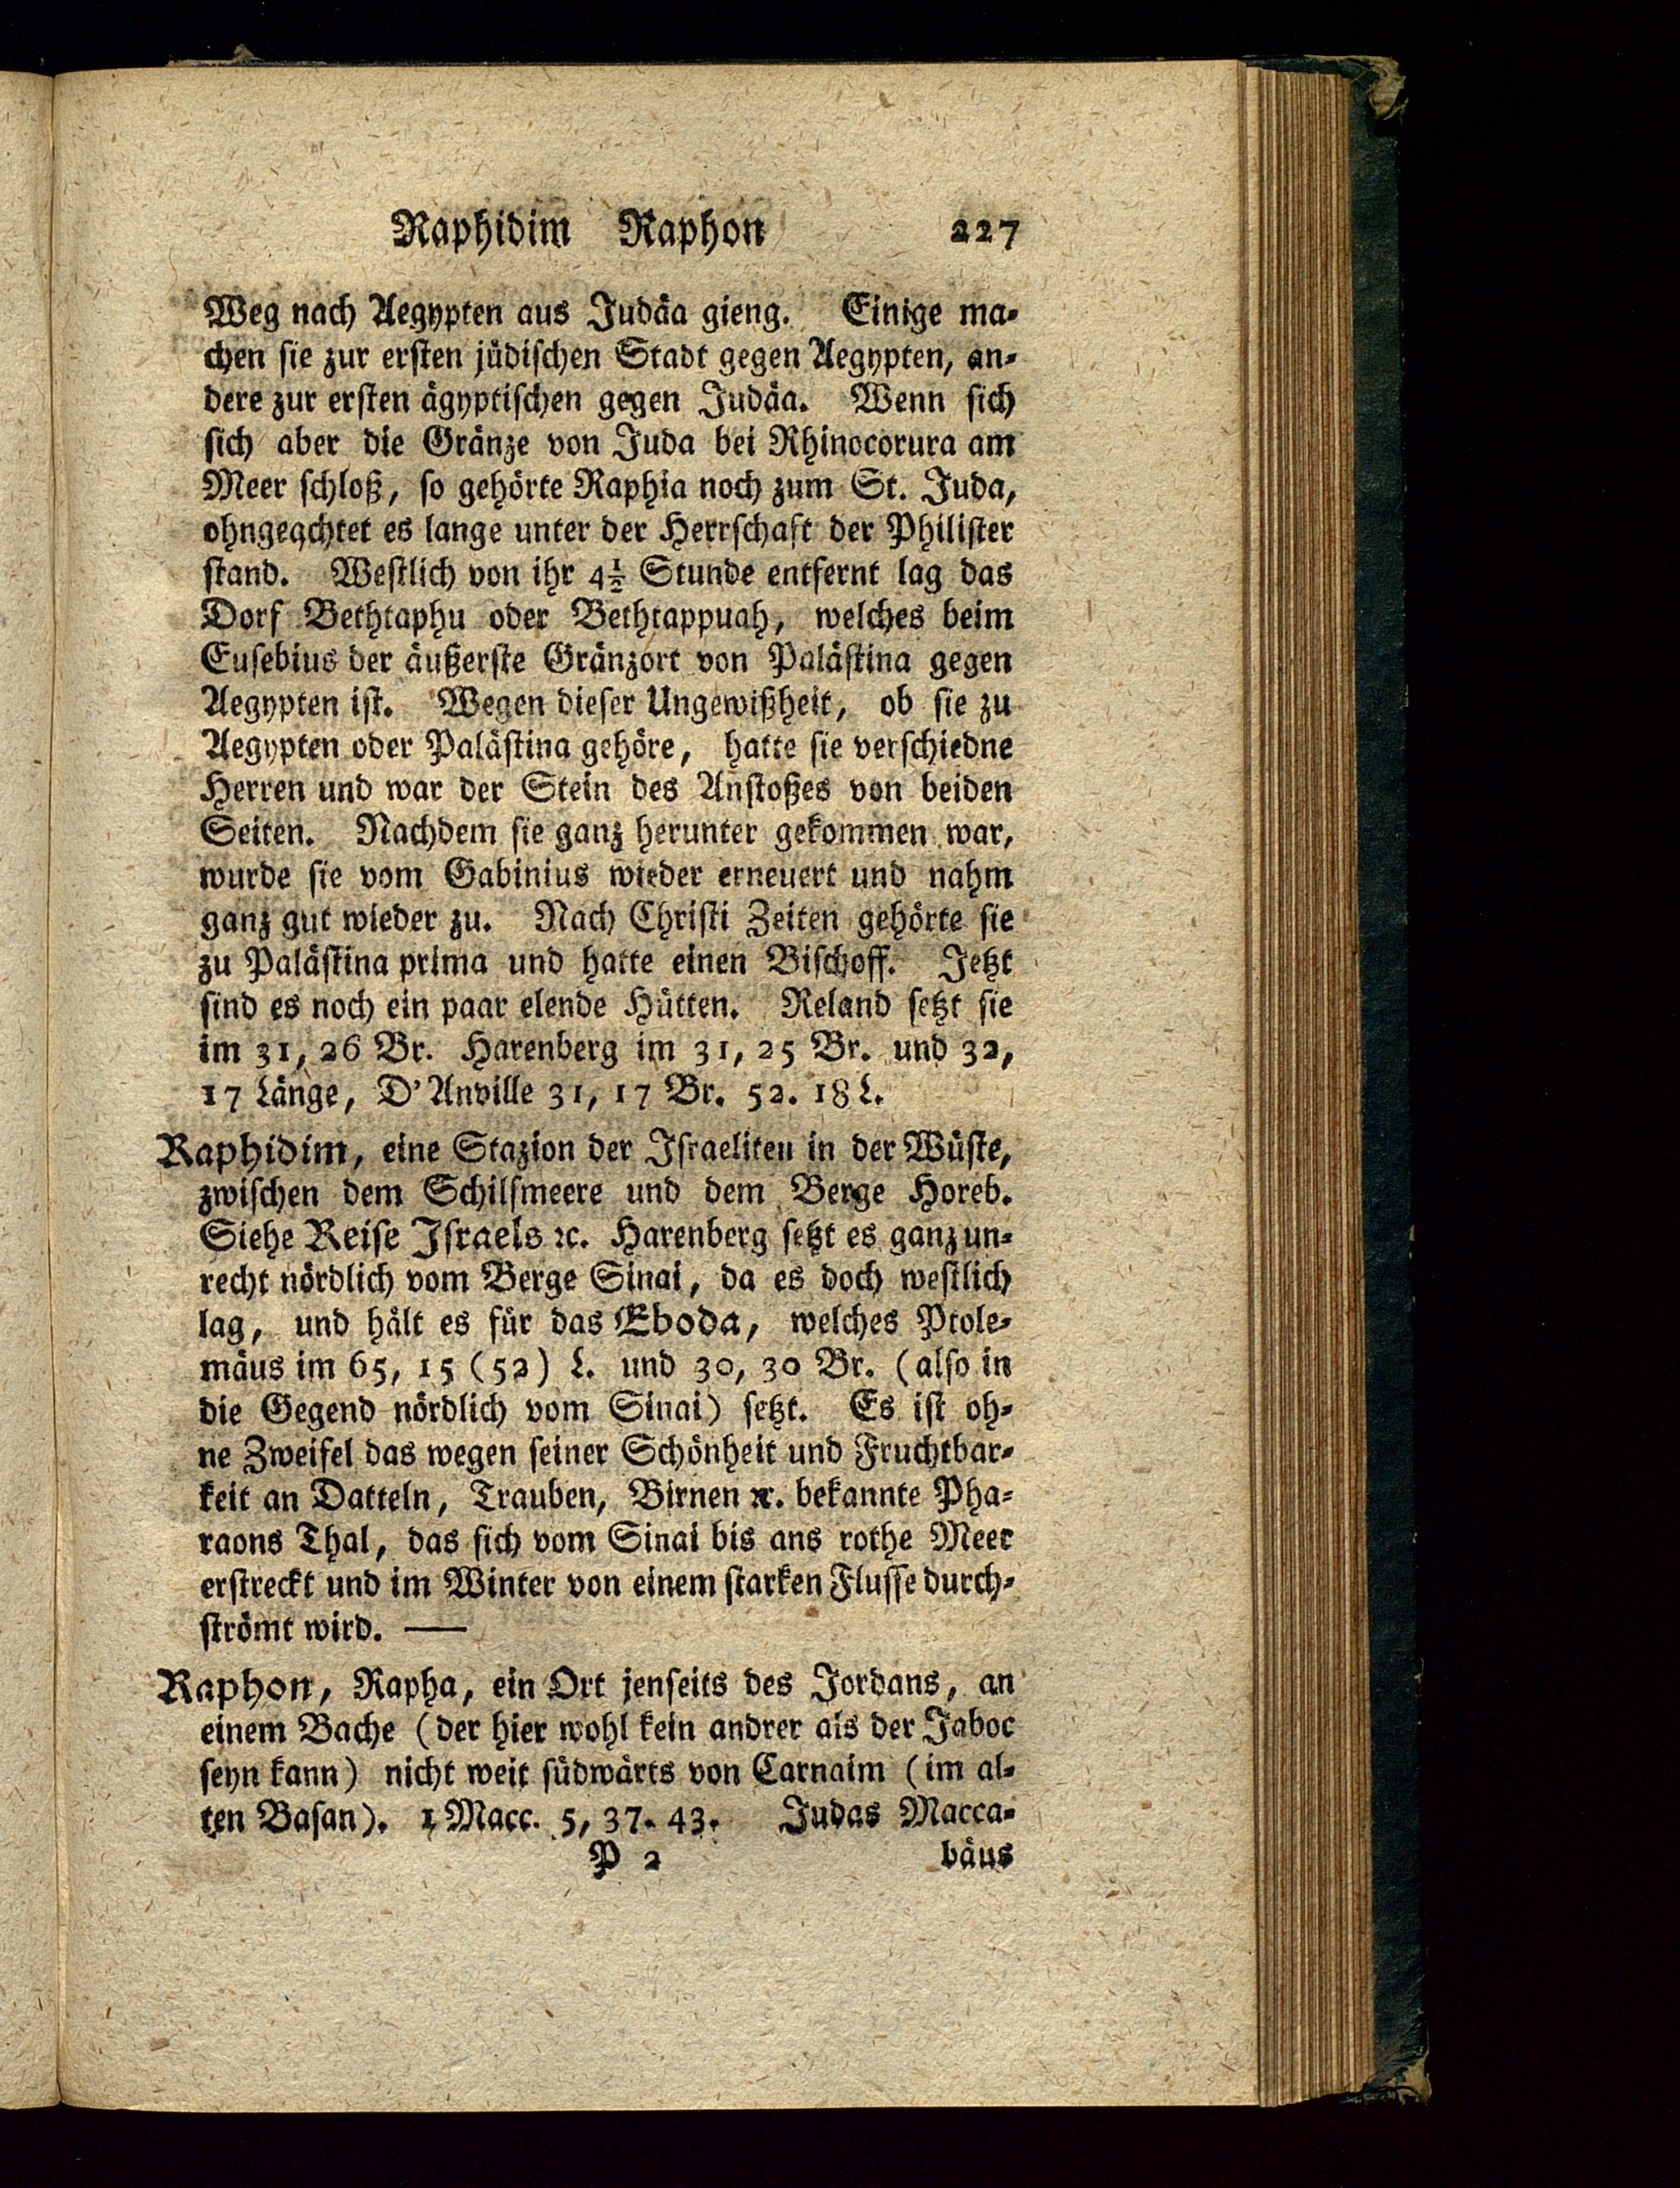 Raphidim Raphon 227
Weg nach Aegypten aus Judäa gieng. Einige ma-
chen sie zur ersten jüdischen Stadt gegen Aegypten, an-
dere zur ersten ägyptischen gegen Judäa. Wenn sich
sich aber die Gränze von Juda bei Rhinocorura am
Meer schloß, so gehörte Raphia noch zum St. Juda,
ohngeachtet es lange unter der Herrschaft der Philister
stand. Westlich von ihr 4½ Stunde entfernt lag das
Dorf Bethtaphu oder Bethtappuah, welches beim
Eusebius der äußerste Gränzort von Palästina gegen
Aegypten ist. Wegen dieser Ungewißheit, ob sie zu
Aegypten oder Palästina gehöre, hatte sie verschiedne
Herren und war der Stein des Anstoßes von beiden
Seiten. Nachdem sie ganz herunter gekommen war,
wurde sie vom Gabinius wieder erneuert und nahm
ganz gut wieder zu. Nach Christi Zeiten gehörte sie
zu Palästina prima und hatte einen Bischoff. Jetzt
sind es noch ein paar elende Hütten. Reland setzt sie
im 31, 26 Br. Harenberg im 31, 25 Br. und 32,
17 Länge, D'Anville 31, 17 Br. 52. 18 L.
Raphidim, eine Stazion der Israeliten in der Wüste,
zwischen dem Schilfmeere und dem Berge Horeb.
Siehe Reise Israels ꝛc. Harenberg setzt es ganz un-
recht nördlich vom Berge Sinai, da es doch westlich
lag, und hält es für das Eboda, welches Ptole-
mäus im 65, 15 (52) L. und 30, 30 Br. (also in
die Gegend nördlich vom Sinai) setzt. Es ist oh-
ne Zweifel das wegen seiner Schönheit und Fruchtbar-
keit an Datteln, Trauben, Birnen ꝛc. bekannte Pha-
raons Thal, das sich vom Sinai bis ans rothe Meer
erstreckt und im Winter von einem starken Flusse durch-
strömt wird. —
Raphon, Rapha, ein Ort jenseits des Jordans, an
einem Bache (der hier wohl kein andrer als der Jaboc
seyn kann) nicht weit südwärts von Carnaim (im al-
ten Basan). 1 Macc. 5, 37. 43. Judas Macca-
P 2 bäus